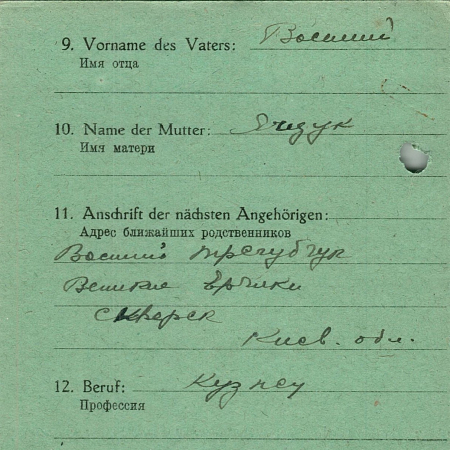 9. Vorname des Vaters: Василий
Имя отца
10. Name der Mutter:
Имя матери
11. Anschrift der nächsten Angehörigen:
Адрес ближайших родственников
Василий Трегубчук
Великие
Сквирск
Киев. обл.
12. Beruf: Кузнец
Профессия